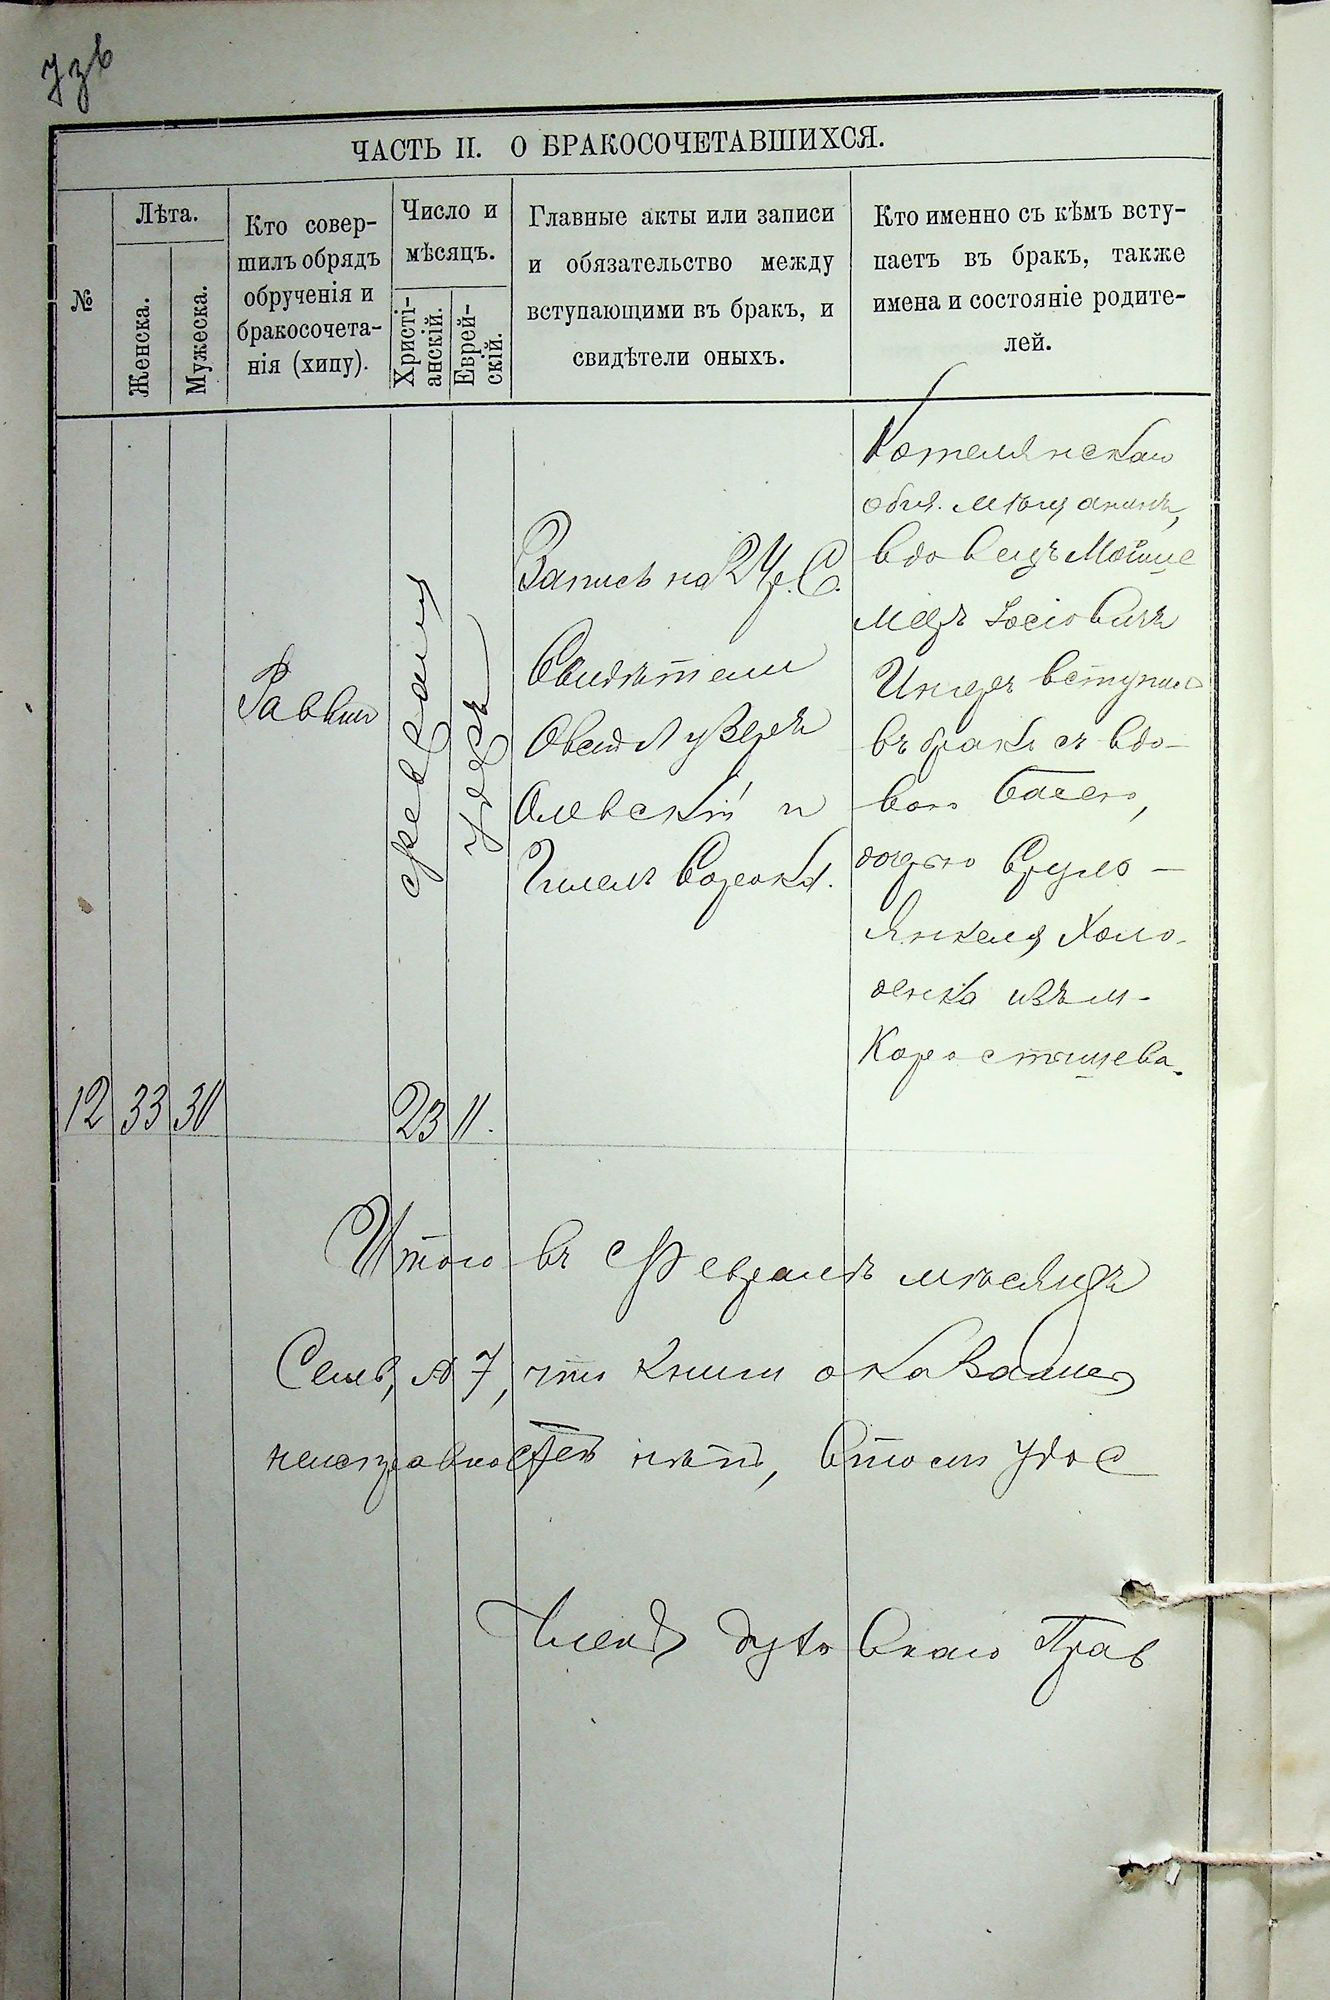 ЧАСТЬ II. О БРАКОСОЧЕТАВШИХСЯ.
№
Лѣта.
Женска.
Мужеска.
Кто совер-
шилъ обрядъ
обрученія и
бракосочета-
нія (хипу).
Число и
мѣсяцъ.
Христі-
анскій.
Еврей-
скій.
Главные акты или записи
и обязательство между
вступающими въ бракъ, и
свидѣтели оныхъ.
Кто именно съ кѣмъ всту-
паетъ въ бракъ, также
имена и состояніе родите-
лей.
12
33
30
Раввин
Февраля
23
11.
Запись на
Свидѣтели
Олевскій и
Сорока.
Котелянскаго
общ. мѣщанинъ,
вдовецъ
Іосіовичъ
вступилъ
въ бракъ съ вдо-
вою Басею,
дочерью Сруло-
Янкеля Холо-
денко изъ м.
Коростышева.
Итого въ Февралѣ мѣсяцѣ
Семь, № 7, что книги
неисправностей нѣтъ, въ томъ удос
Членъ Духовнаго Прав